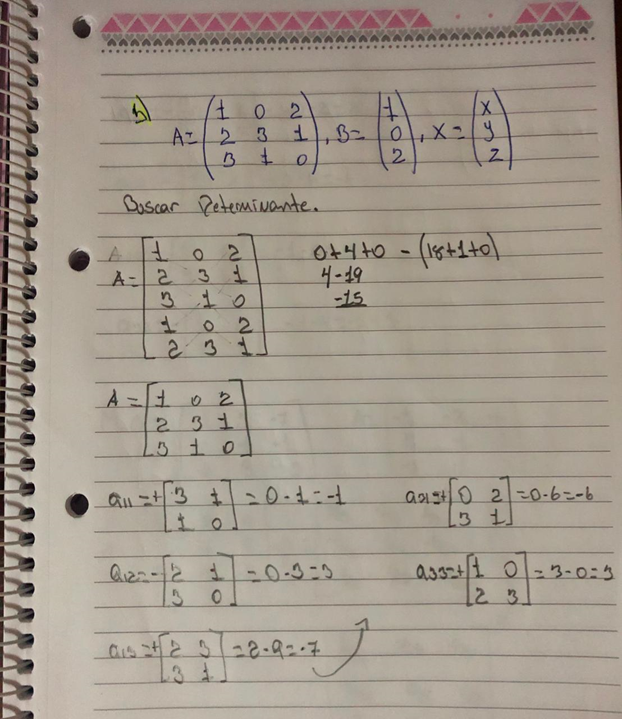 b)
A=(1 0 2
2 3 1
3 1 0), B=(1
0
2), X=(x
y
z)
Buscar Determinante.
A=[1 0 2
2 3 1
3 1 0
1 0 2
2 3 1]
0+4+0 - (18+1+0)
4-19
-15
A=[1 0 2
2 3 1
3 1 0]
a11=+[3 1
1 0]=0-1=-1
a12=-[2 1
3 0]=0-3=3
a13=+[2 3
3 1]=2-9=-7
a31=+[0 2
3 1]=0-6=-6
a33=+[1 0
2 3]=3-0=3